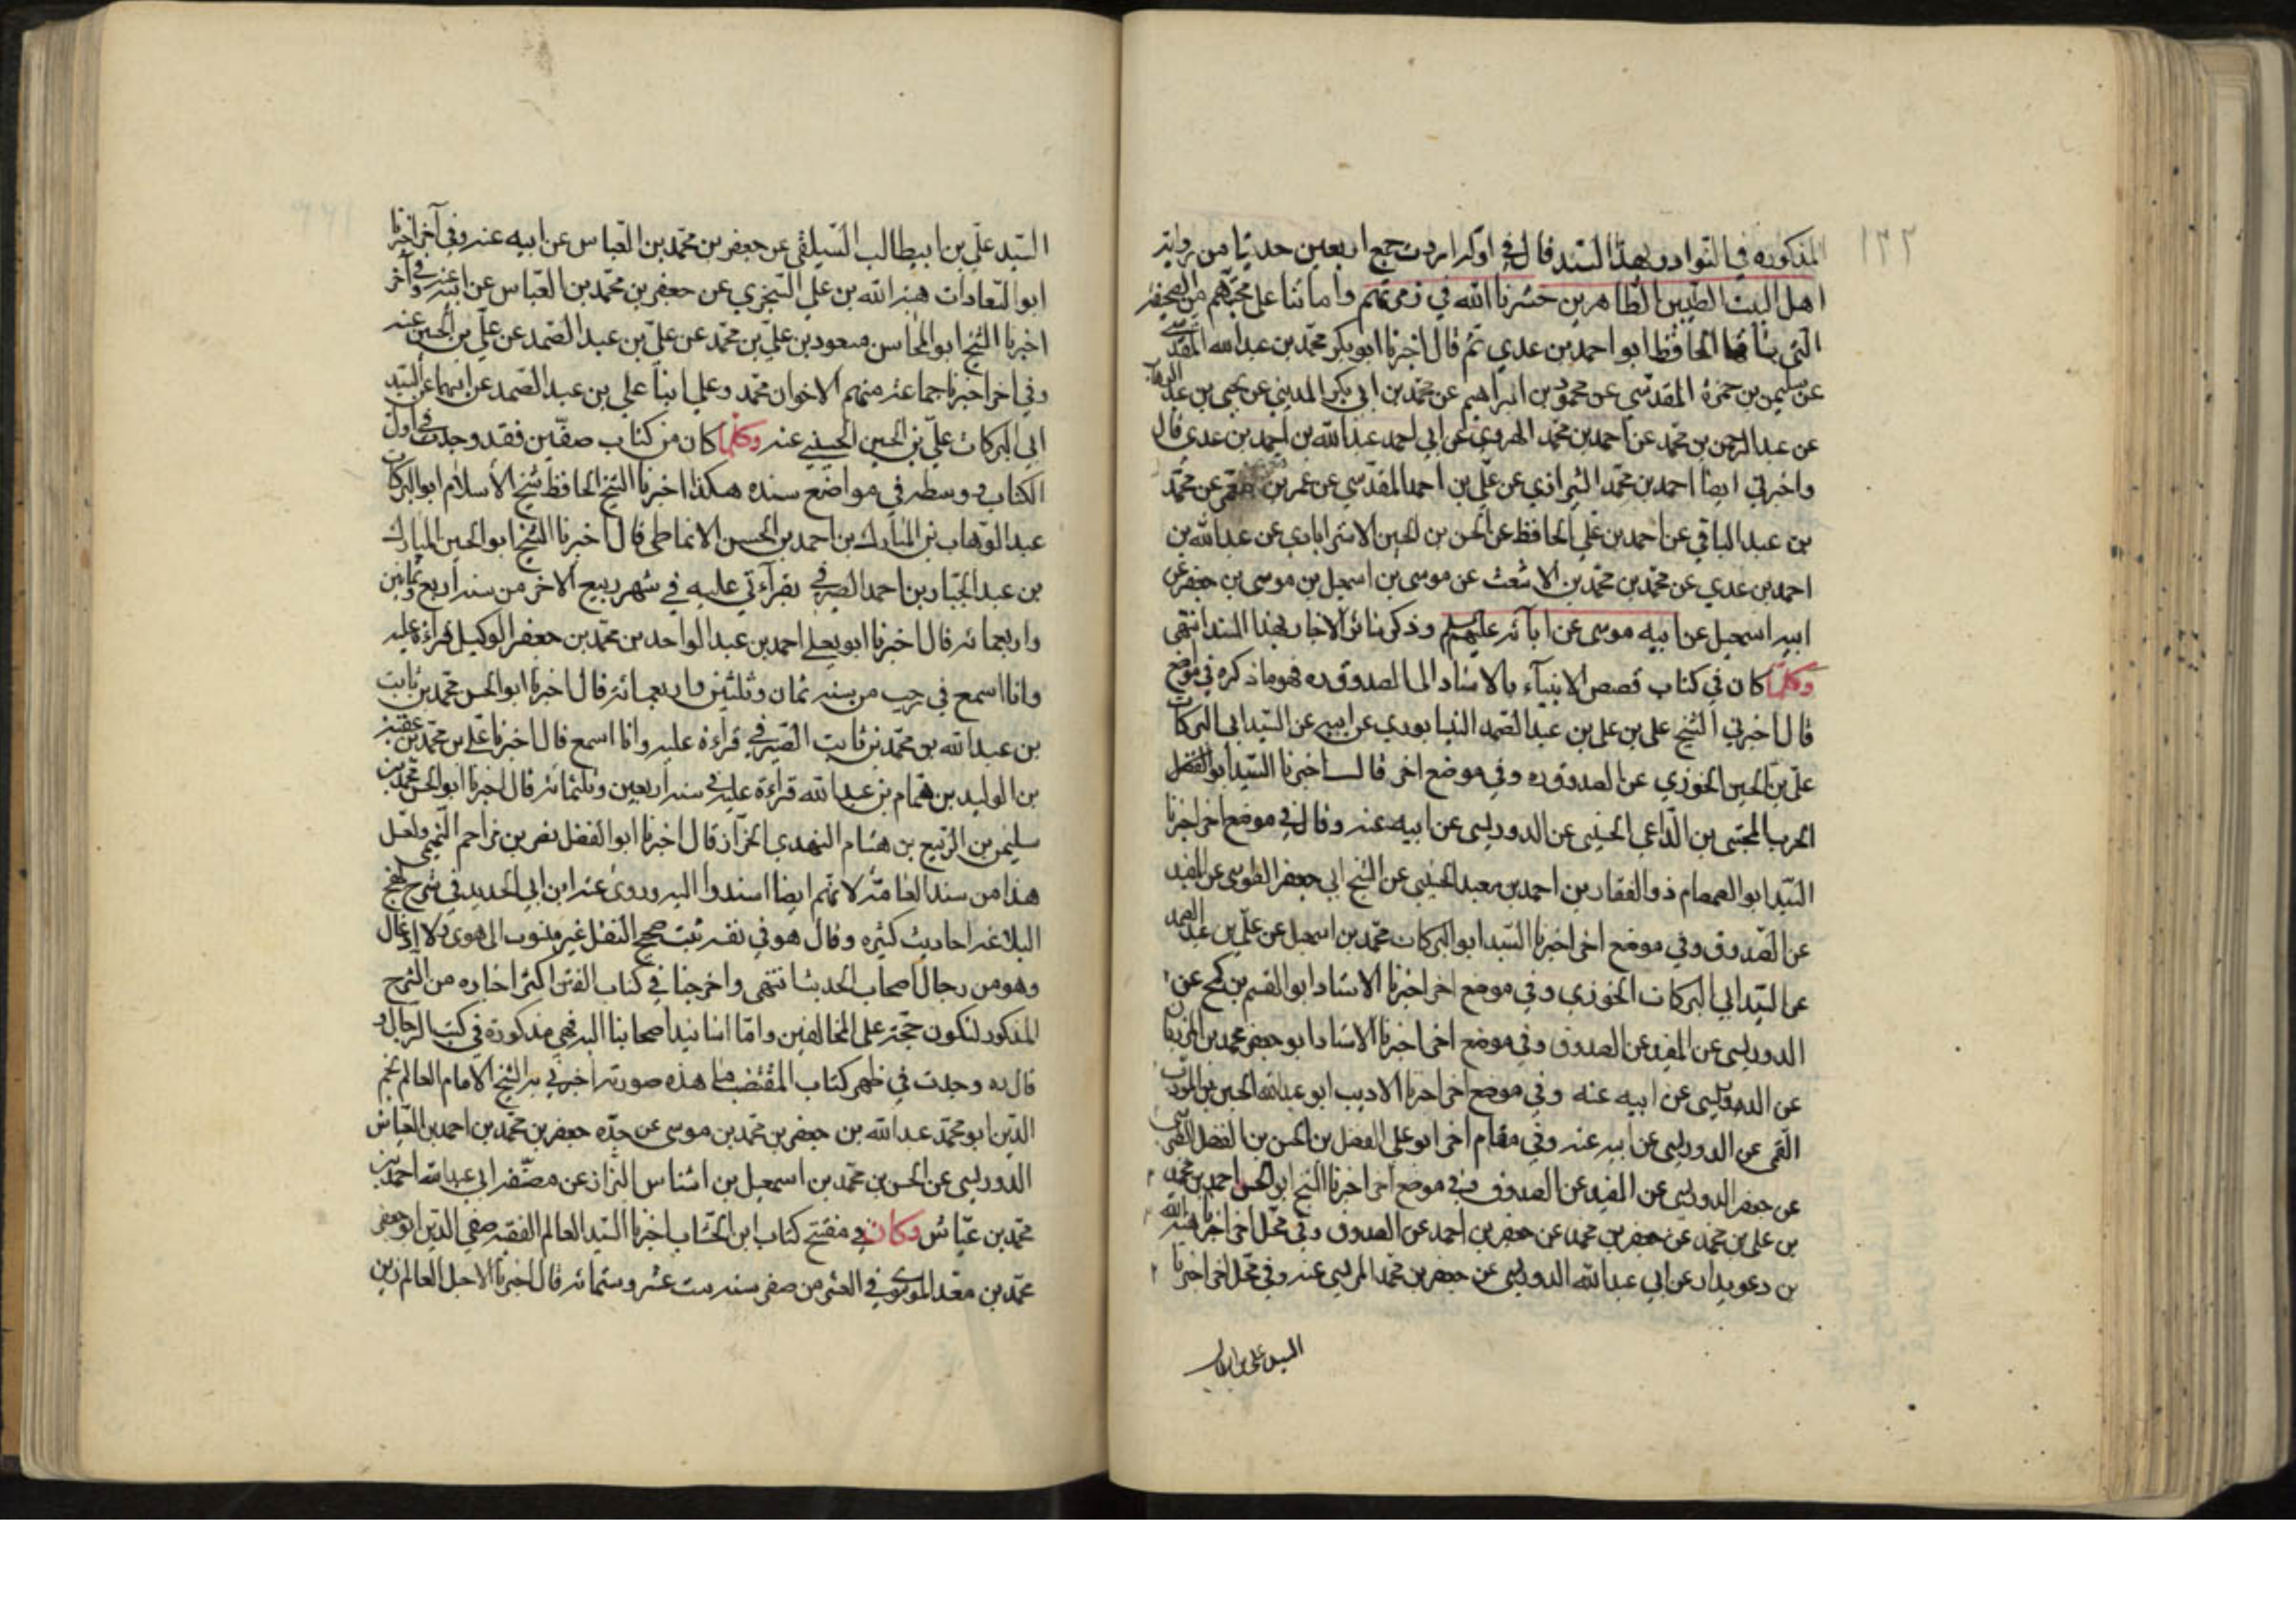 ١٢٢
المذكوره في النوادر بهذا السند قال في اوله اردت جمع اربعين حديثا من رواية
اهل البيت الطيبين الطاهرين حشرنا الله في زمرتهم واماتنا على محبتهم من الصحيفة
التي ساقها الحافظ ابو احمد بن عدي ثم قال اخبرنا ابو بكر محمد بن عبدالله المقدسي
عن سليمن بن حمزة المقدسي عن محمود بن ابراهيم عن محمد بن ابي بكر المديني عن يحيى بن عبد الوهاب
عن عبد الرحمن بن محمد عن احمد بن محمد الهروي عن ابي احمد عبدالله بن احمد بن عدي قال
واخبرني ايضا احمد بن محمد الشيرازي عن علي بن احمد المقدسي عن عمر بن عن محمد
بن عبد الباقي عن احمد بن علي الحافظ عن الحسن بن الحسين الاسترابادي عن عبدالله بن
احمد بن عدي عن محمد بن محمد بن الاشعث عن موسى بن اسمعيل بن موسى بن جعفر عن
ابيه اسمعيل عن ابيه موسى عن آبائه عليهم السلم وذكر سائر الاخبار بهذا السند انتهى
وكلما كان في كتاب قصص الانبيآء بالاسناد الى الصدوق ره فهو ما ذكره في موضع
قال اخبرني الشيخ علي بن علي بن عبد الصمد النيسابوري عن ابيه عن السيد ابي البركات
علي بن الحسين الخوزي عن الصدوق ره وفي موضع اخر قال اخبرنا السيد ابو الفضل
الحرب المجتبى بن الداعي الحسيني عن الدوريستي عن ابيه عنه وقال في موضع اخر اخبرنا
السيد ابو الصمصام ذو الفقار بن احمد بن معبد الحسيني عن الشيخ ابي جعفر الطوسي عن المفيد
عن الصدوق وفي موضع اخر اخبرنا السيد ابو البركات محمد بن اسمعيل عن علي بن عبد الصمد
عن السيد ابي البركات الخوزي وفي موضع اخر اخبرنا الاستاد ابو القسم بن كمح عن
الدوريستي عن المفيد عن الصدوق وفي موضع اخر اخبرنا الاستاد ابو جعفر محمد بن المرزبان
عن الدوريستي عن ابيه عنه وفي موضع اخر اخبرنا الاديب ابو عبدالله الحسين المؤدب
القمي عن الدوريستي عن ابيه عنه وفي مقام اخر ابو علي الفضل بن الحسن بن الفضل الطبرسي
عن جعفر الدوريستي عن المفيد عن الصدوق وفي موضع اخر اخبرنا الشيخ ابو الحسن احمد بن محمد
بن علي بن محمد عن جعفر بن محمد عن جعفر بن احمد عن الصدوق وفي محل اخر اخبرنا هبة الله
بن دعويدار عن ابي عبدالله الدوريستي عن جعفر بن محمد المريسي عنه وفي محل اخر اخبرنا
السيد علي بن ابيطالب
السيد علي بن ابيطالب السيلقي عن جعفر بن محمد بن العباس عن ابيه عنه وفي آخر اخبرنا
ابو السعادات هبة الله بن علي الشجري عن جعفر بن محمد بن العباس عن ابيه عنه وفي آخر
اخبرنا الشيخ ابو المحاسن مسعود بن علي بن محمد عن علي بن عبد الصمد عن علي بن الحسين عنه
وفي اخر اخبرنا جماعة منهم الاخوان محمد وعلي ابنا علي بن عبد الصمد عن ابيهما عن السيد
ابي البركات علي بن الحسين الحسيني عنه وكلما كان من كتاب صفين فقد وجدت في اول
الكتاب ووسطه في مواضع سنده هكذا اخبرنا الشيخ الحافظ شيخ الاسلام ابو البركات
عبد الوهاب بن المبارك بن احمد بن الحسن الانماطي قال اخبرنا الشيخ ابو الحسين المبارك
بن عبد الجبار بن احمد الصيرفي بقرآءتي عليه في شهر ربيع الاخر من سنة اربع وثمانين
واربعمائة قال اخبرنا ابو يعلى احمد بن عبد الواحد بن محمد بن جعفر الوكيل قراءة عليه
وانا اسمع في رجب من سنة ثمان وثلثين واربعمائة قال اخبرنا ابو الحسن محمد بن ثابت
بن عبدالله بن محمد بن ثابت الصيرفي قراءة عليه وانا اسمع قال اخبرنا علي بن محمد بن عقبة
بن الوليد بن همام بن عبدالله قراءة عليه في سنة اربعين وثلثمائة قال اخبرنا ابو الحسن محمد بن
سليمن بن الربيع بن هشام النهدي الخزاز قال اخبرنا ابو الفضل نصر بن مزاحم التميمي ولعل
هذا من سند العامة لانهم ايضا اسندوا اليه وروى عنه ابن ابي الحديد في شرح نهج
البلاغة احاديث كثيرة وقال هو في نفسه ثبت صحيح النقل غير منسوب الى هوى ولا ادغال
وهو من رجال اصحاب الحديث انتهى واخرجنا في كتاب الفتن اكثر اخباره من الشرح
المذكور لتكون حجة على المخالفين واما اسانيد اصحابنا اليه فهي مذكورة في كتب الرجال و
قال ره وجدت في ظهر كتاب المقتضب ما هذه صورته اخبرني به الشيخ الامام العالم نجم
الدين ابو محمد عبدالله بن جعفر بن محمد بن موسى عن جده جعفر بن محمد بن احمد بن العباس
الدوريستي عن الحسن بن محمد بن اسمعيل بن اشناس البزاز عن مصنفه ابي عبدالله احمد بن
محمد بن عياش وكان في مفتتح كتاب ابن الخشاب اخبرنا السيد العالم الفقيه صفي الدين ابو جعفر
محمد بن معد الموسوي في العشر من صفر سنة ست عشر وستمائة قال اخبرنا الاجل العالم زين